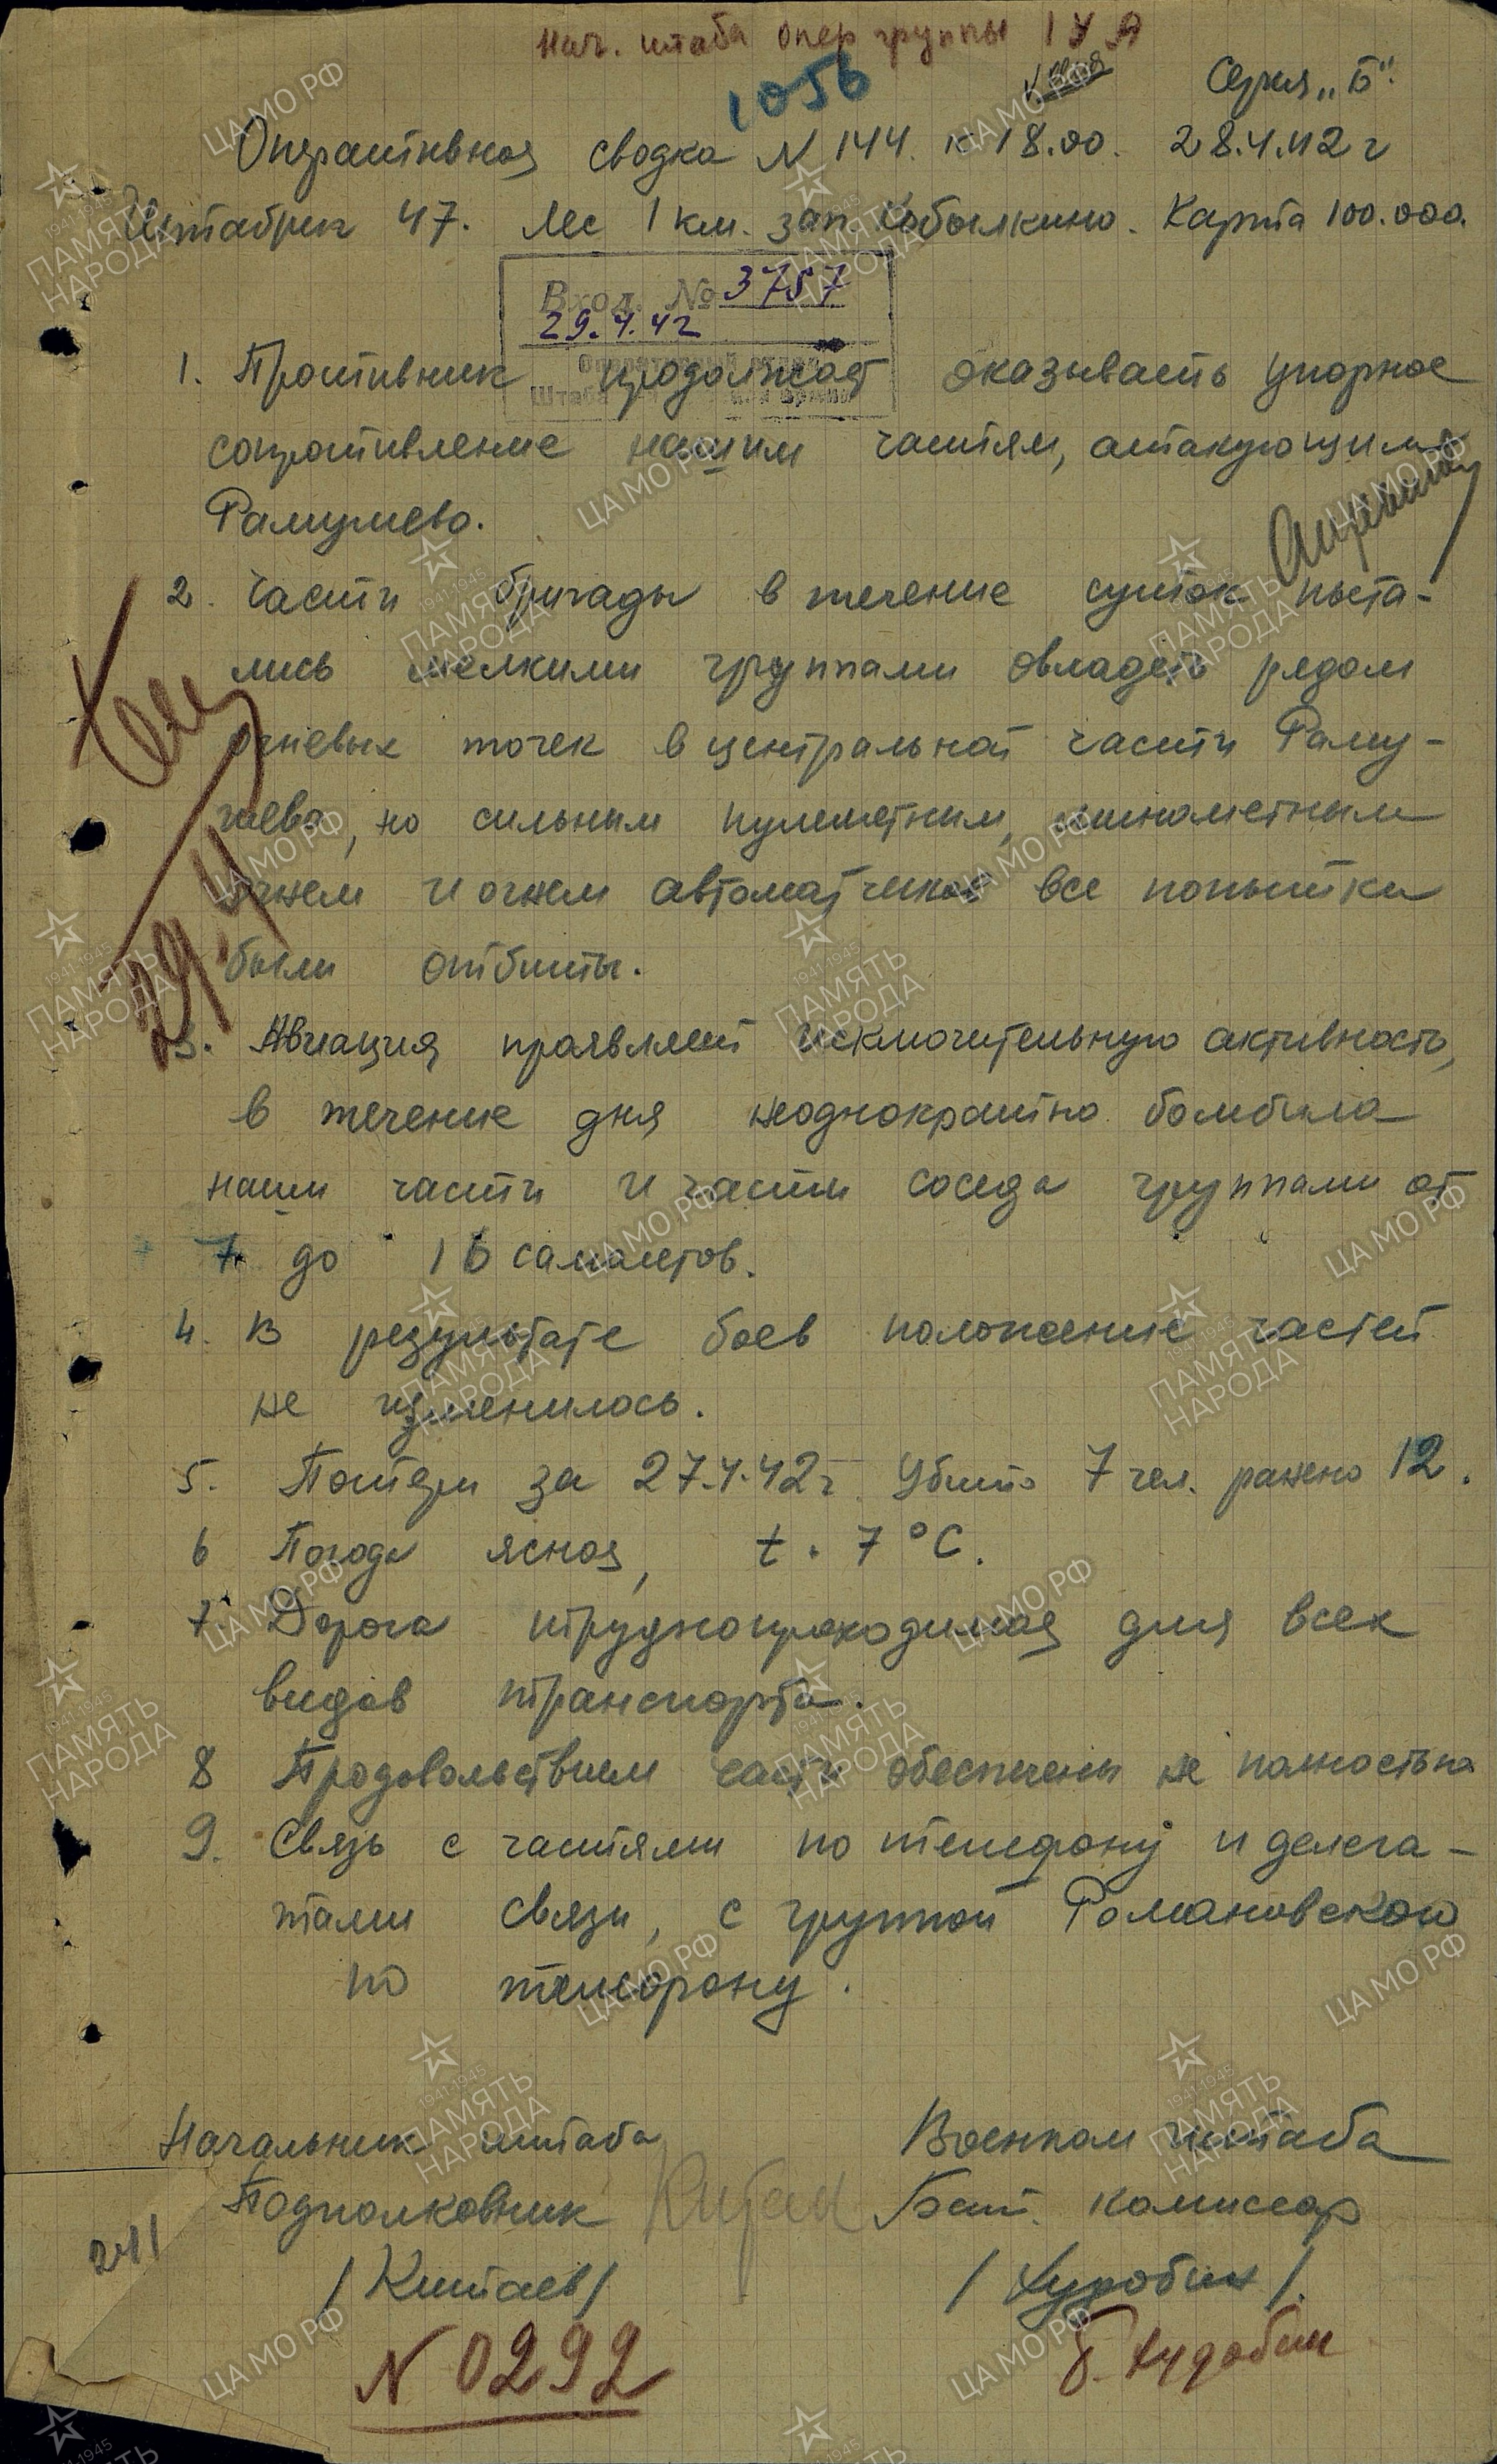 Нач. штаба опер группы 1 У А
1056
Серия „Б“.
Оперативная сводка N 144. к 18.00. 28.4.42 г
Штабриг 47. Лес 1 км. зап. Кобылкино. Карта 100.000.
Вход. № 3757
29.4.42
Оперативный отдел
Штаба
1. Противник продолжает оказывать упорное
сопротивление нашим частям, атакующим
Рамушево.
2. Части бригады в течение суток пыта-
лись мелкими группами овладеть рядом
огневых точек в центральной части Раму-
шева, но сильным пулеметным, минометным
огнем и огнем автоматчиков все попытки
были отбиты.
29.4
3. Авиация проявляет исключительную активность,
в течение дня неоднократно бомбила
наши части и части соседа группами от
7 до 16 самолетов.
4. В результате боев положение частей
не изменилось.
5. Потери за 27.4.42 г. Убито 7 чел. ранено 12.
6 Погода ясная, t. 7°C.
7 Дорога труднопроходимая для всех
видов транспорта.
8 Продовольствием части обеспечены не полностью
9. Связь с частями по телефону и делега-
тами связи, с группой Романовского
по телефону.
Начальник штаба Военком штаба
Подполковник Китаев Бат. комиссар
/Китаев/ /Худобин/
241
N 0292 Б. Худобин
ЦАМО РФ
1941-1945
ПАМЯТЬ
НАРОДА